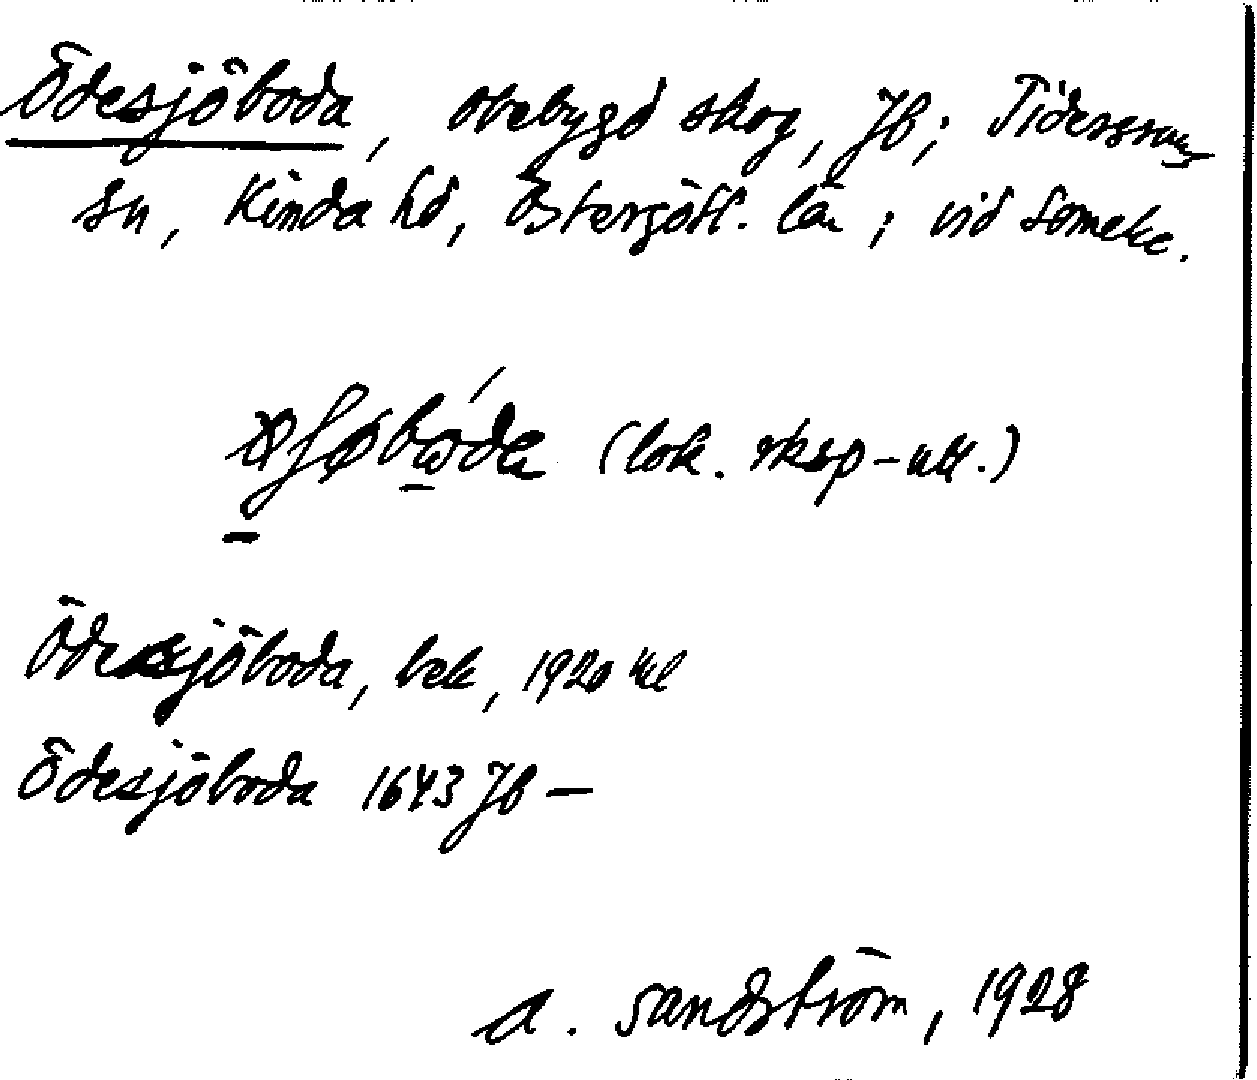 Ödesjöboda, obebygd skog, Jb; Tidersrums
sn, Kinda hd, Östergötl. län; vid Someke.
(lok. rksp-utt.)
Ödesjöboda, bek, 1920
Ödesjöboda 1643 Jb —
A. Sandström, 1928